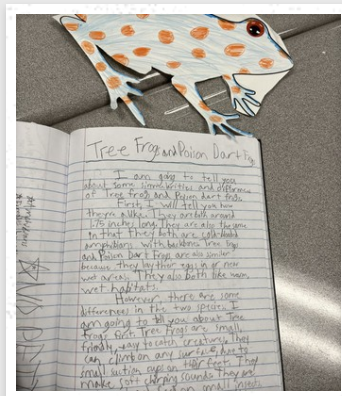 Tree Frogs and Poison Dart Frogs
I am going to tell you
about some similarities and differences
of Tree frogs and Poison dart frogs.
First, I will tell you how
they are alike. They are both around
1.75 inches long. They are also the same
in that they both are cold-blooded
amphibians with backbones. Tree frogs
and Poison Dart Frogs are also similar
because they lay their eggs in or near
wet areas. They also both like warm,
wet habitats.
However, there are some
differences in the two species. I
am going to tell you about Tree
frogs first. Tree frogs are small,
friendly, easy to catch creatures. They
can climb on any surface, due to
small suction cups on their feet. They
make soft chirping sounds. They are
small insects